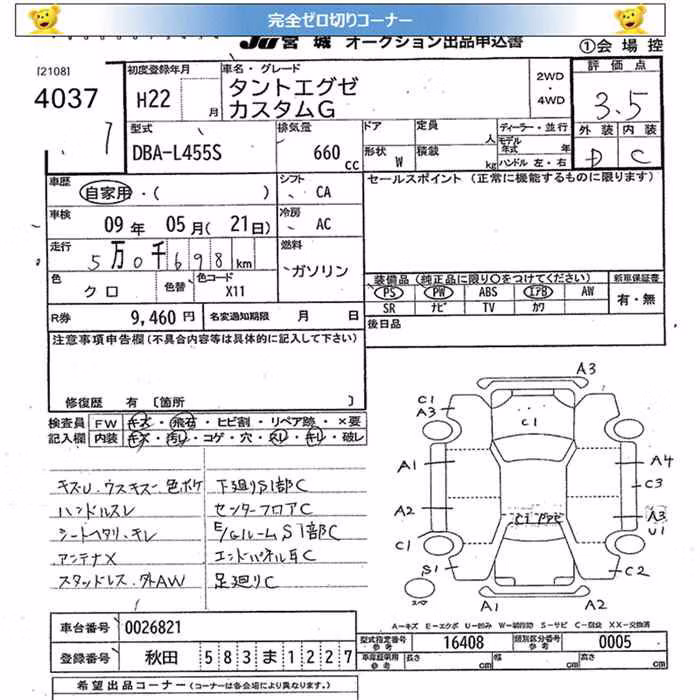 完全ゼロ切りコーナー
JU宮城 オークション出品申込書
①会場控
[2108]
4037
初度登録年月
H22 月
車名・グレード
タントエグゼ
カスタムG
2WD
・
4WD
評価点
3.5
外装 内装
D C
型式
DBA-L455S
排気量
660 cc
ドア 定員 人
形状 W 積載 kg
ディーラー・並行
モデル年式 年
ハンドル 左・右
車歴
自家用・( )
シフト
CA
セールスポイント (正常に機能するものに限ります)
車検
09年 05月(21日)
冷房
AC
走行
5万0千698km
燃料
ガソリン
色
クロ
色替
色コード
X11
装備品(純正品に限り○をつけてください)
新車保証書
PS PW ABS エアB AW
有・無
SR ナビ TV カワ
R券 9,460円
名変通知期限 月 日
後日品
注意事項申告欄(不具合内容等は具体的に記入して下さい)
修復歴 有 [箇所 ]
検査員 FW キズ・飛石・ヒビ割・リペア跡・×要
記入欄 内装 キズ・汚レ・コゲ・穴・スレ・キレ・破レ
キズU、ウスキズ、色ボケ
ハンドルスレ
シートヘタリ、キレ
アンテナX
スタッドレス、外AW
下廻りS1部C
センターフロアC
E/GルームS1部C
エンドパネル耳C
足廻りC
A3
C1
A3
C1
A1
A4
C3
A2
A3
U1
C1
S1
C2
A1
A2
A－キズ E－エクボ U－凹み W－補修跡 S－サビ C－腐食 XX－交換済
車台番号 0026821
登録番号 秋田 583 ま 1227
型式指定番号 参考 16408
類別区分番号 参考 0005
車庫証明用 参考 長さ cm 幅 cm 高さ cm
希望出品コーナー(コーナーは各会場により異なります。)